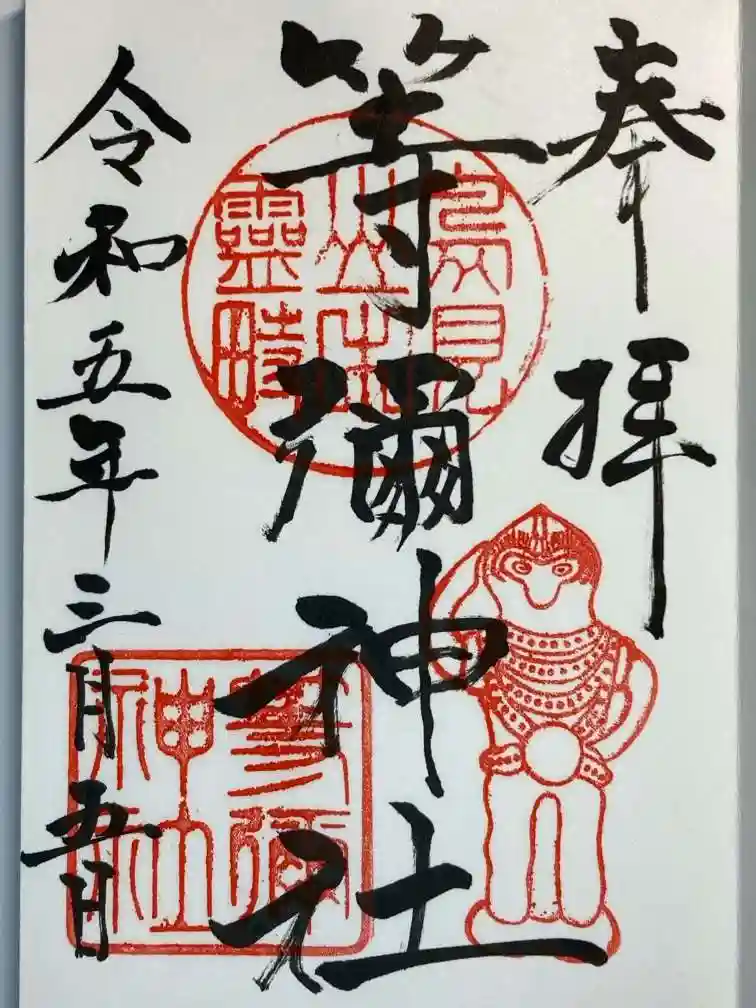 奉拝
等彌神社
鳥見
山中
靈畤
等彌
神社
令和五年三月五日